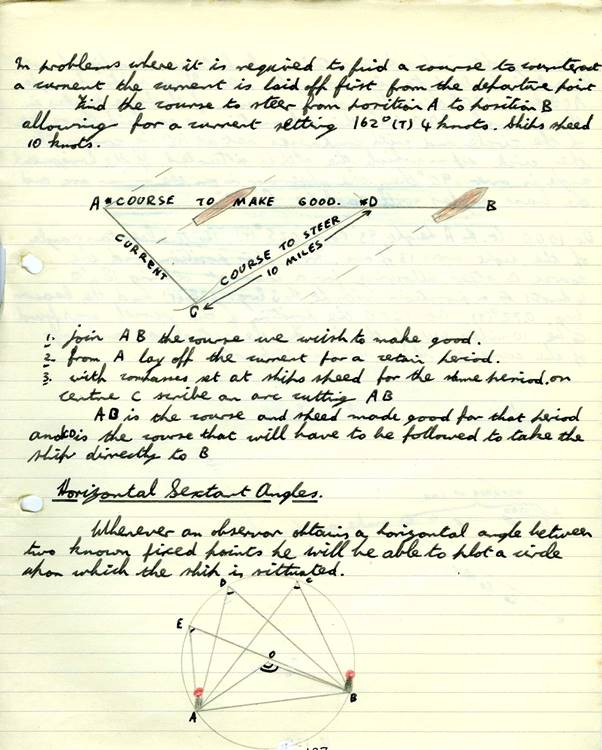 In problems where it is required to find a course to counteract
a current the current is laid off first from the departure point
Find the course to steer from position A to position B
allowing for a current setting 162° (T) 4 knots. Ships speed
10 knots.
A COURSE TO MAKE GOOD. D B
CURRENT
COURSE TO STEER
10 MILES
C
1. join AB the course we wish to make good.
2. from A lay off the current for a retain period.
3. with compasses set at ships speed for the same period, on
centre C scribe an arc cutting AB
AD is the course and speed made good for that period
and CD is the course that will have to be followed to take the
ship directly to B
Horizontal Sextant Angles.
Whenever an observor obtains a horizontal angle between
two known fixed points he will be able to plot a circle
upon which the ship is sittuated.
D C
E
O
B
A